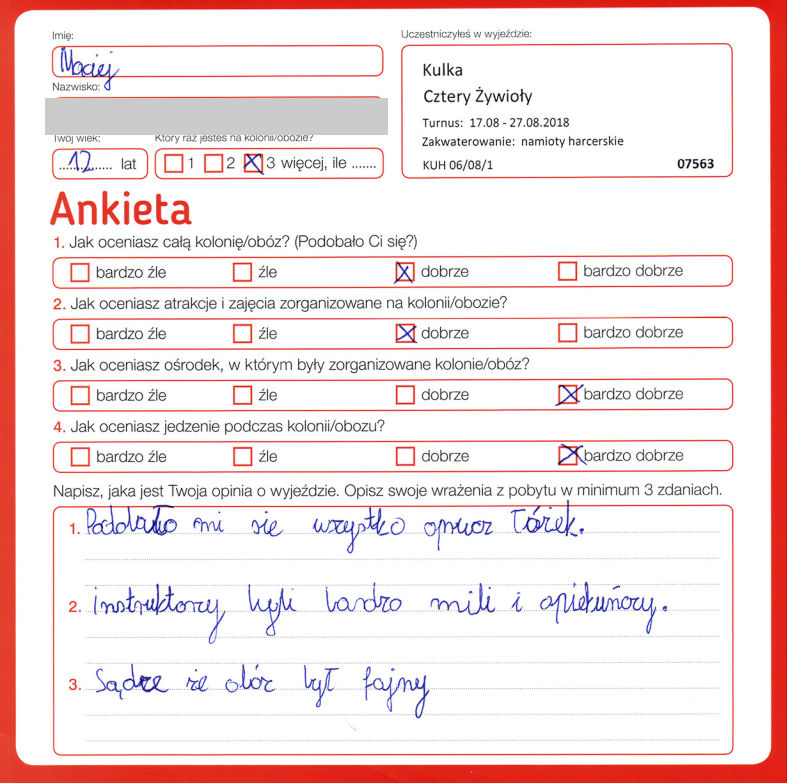 Imię:
Maciej
Nazwisko:
Twój wiek:
12 lat
Który raz jesteś na kolonii/obozie?
1 2 3 więcej, ile .......
Uczestniczyłeś w wyjeździe:
Kulka
Cztery Żywioły
Turnus: 17.08 - 27.08.2018
Zakwaterowanie: namioty harcerskie
KUH 06/08/1 07563
Ankieta
1. Jak oceniasz całą kolonię/obóz? (Podobało Ci się?)
bardzo źle źle dobrze bardzo dobrze
2. Jak oceniasz atrakcje i zajęcia zorganizowane na kolonii/obozie?
bardzo źle źle dobrze bardzo dobrze
3. Jak oceniasz ośrodek, w którym były zorganizowane kolonie/obóz?
bardzo źle źle dobrze bardzo dobrze
4. Jak oceniasz jedzenie podczas kolonii/obozu?
bardzo źle źle dobrze bardzo dobrze
Napisz, jaka jest Twoja opinia o wyjeździe. Opisz swoje wrażenia z pobytu w minimum 3 zdaniach.
1. Podobało mi sie wszystko oprucz łóżek.
2. instruktorzy byli bardzo mili i opiekuńczy.
3. Sądze że obóz był fajny